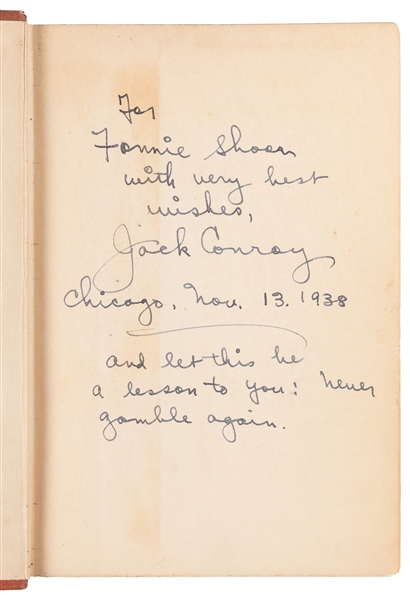 For
Fannie Shoen
with very best
wishes,
Jack Conroy
Chicago, Nov. 13. 1938
and let this be
a lesson to you: Never
gamble again.